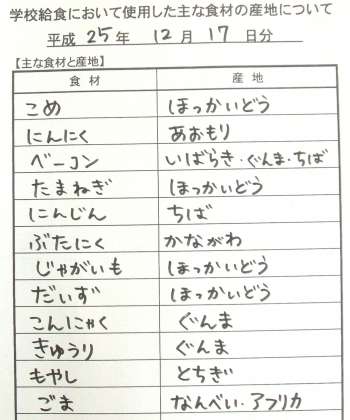 学校給食において使用した主な食材の産地について
平成 25 年 12 月 17 日分
【主な食材と産地】
食材 産地
こめ ほっかいどう
にんにく あおもり
ベーコン いばらき・ぐんま・ちば
たまねぎ ほっかいどう
にんじん ちば
ぶたにく かながわ
じゃがいも ほっかいどう
だいず ほっかいどう
こんにゃく ぐんま
きゅうり ぐんま
もやし とちぎ
ごま なんべい・アフリカ